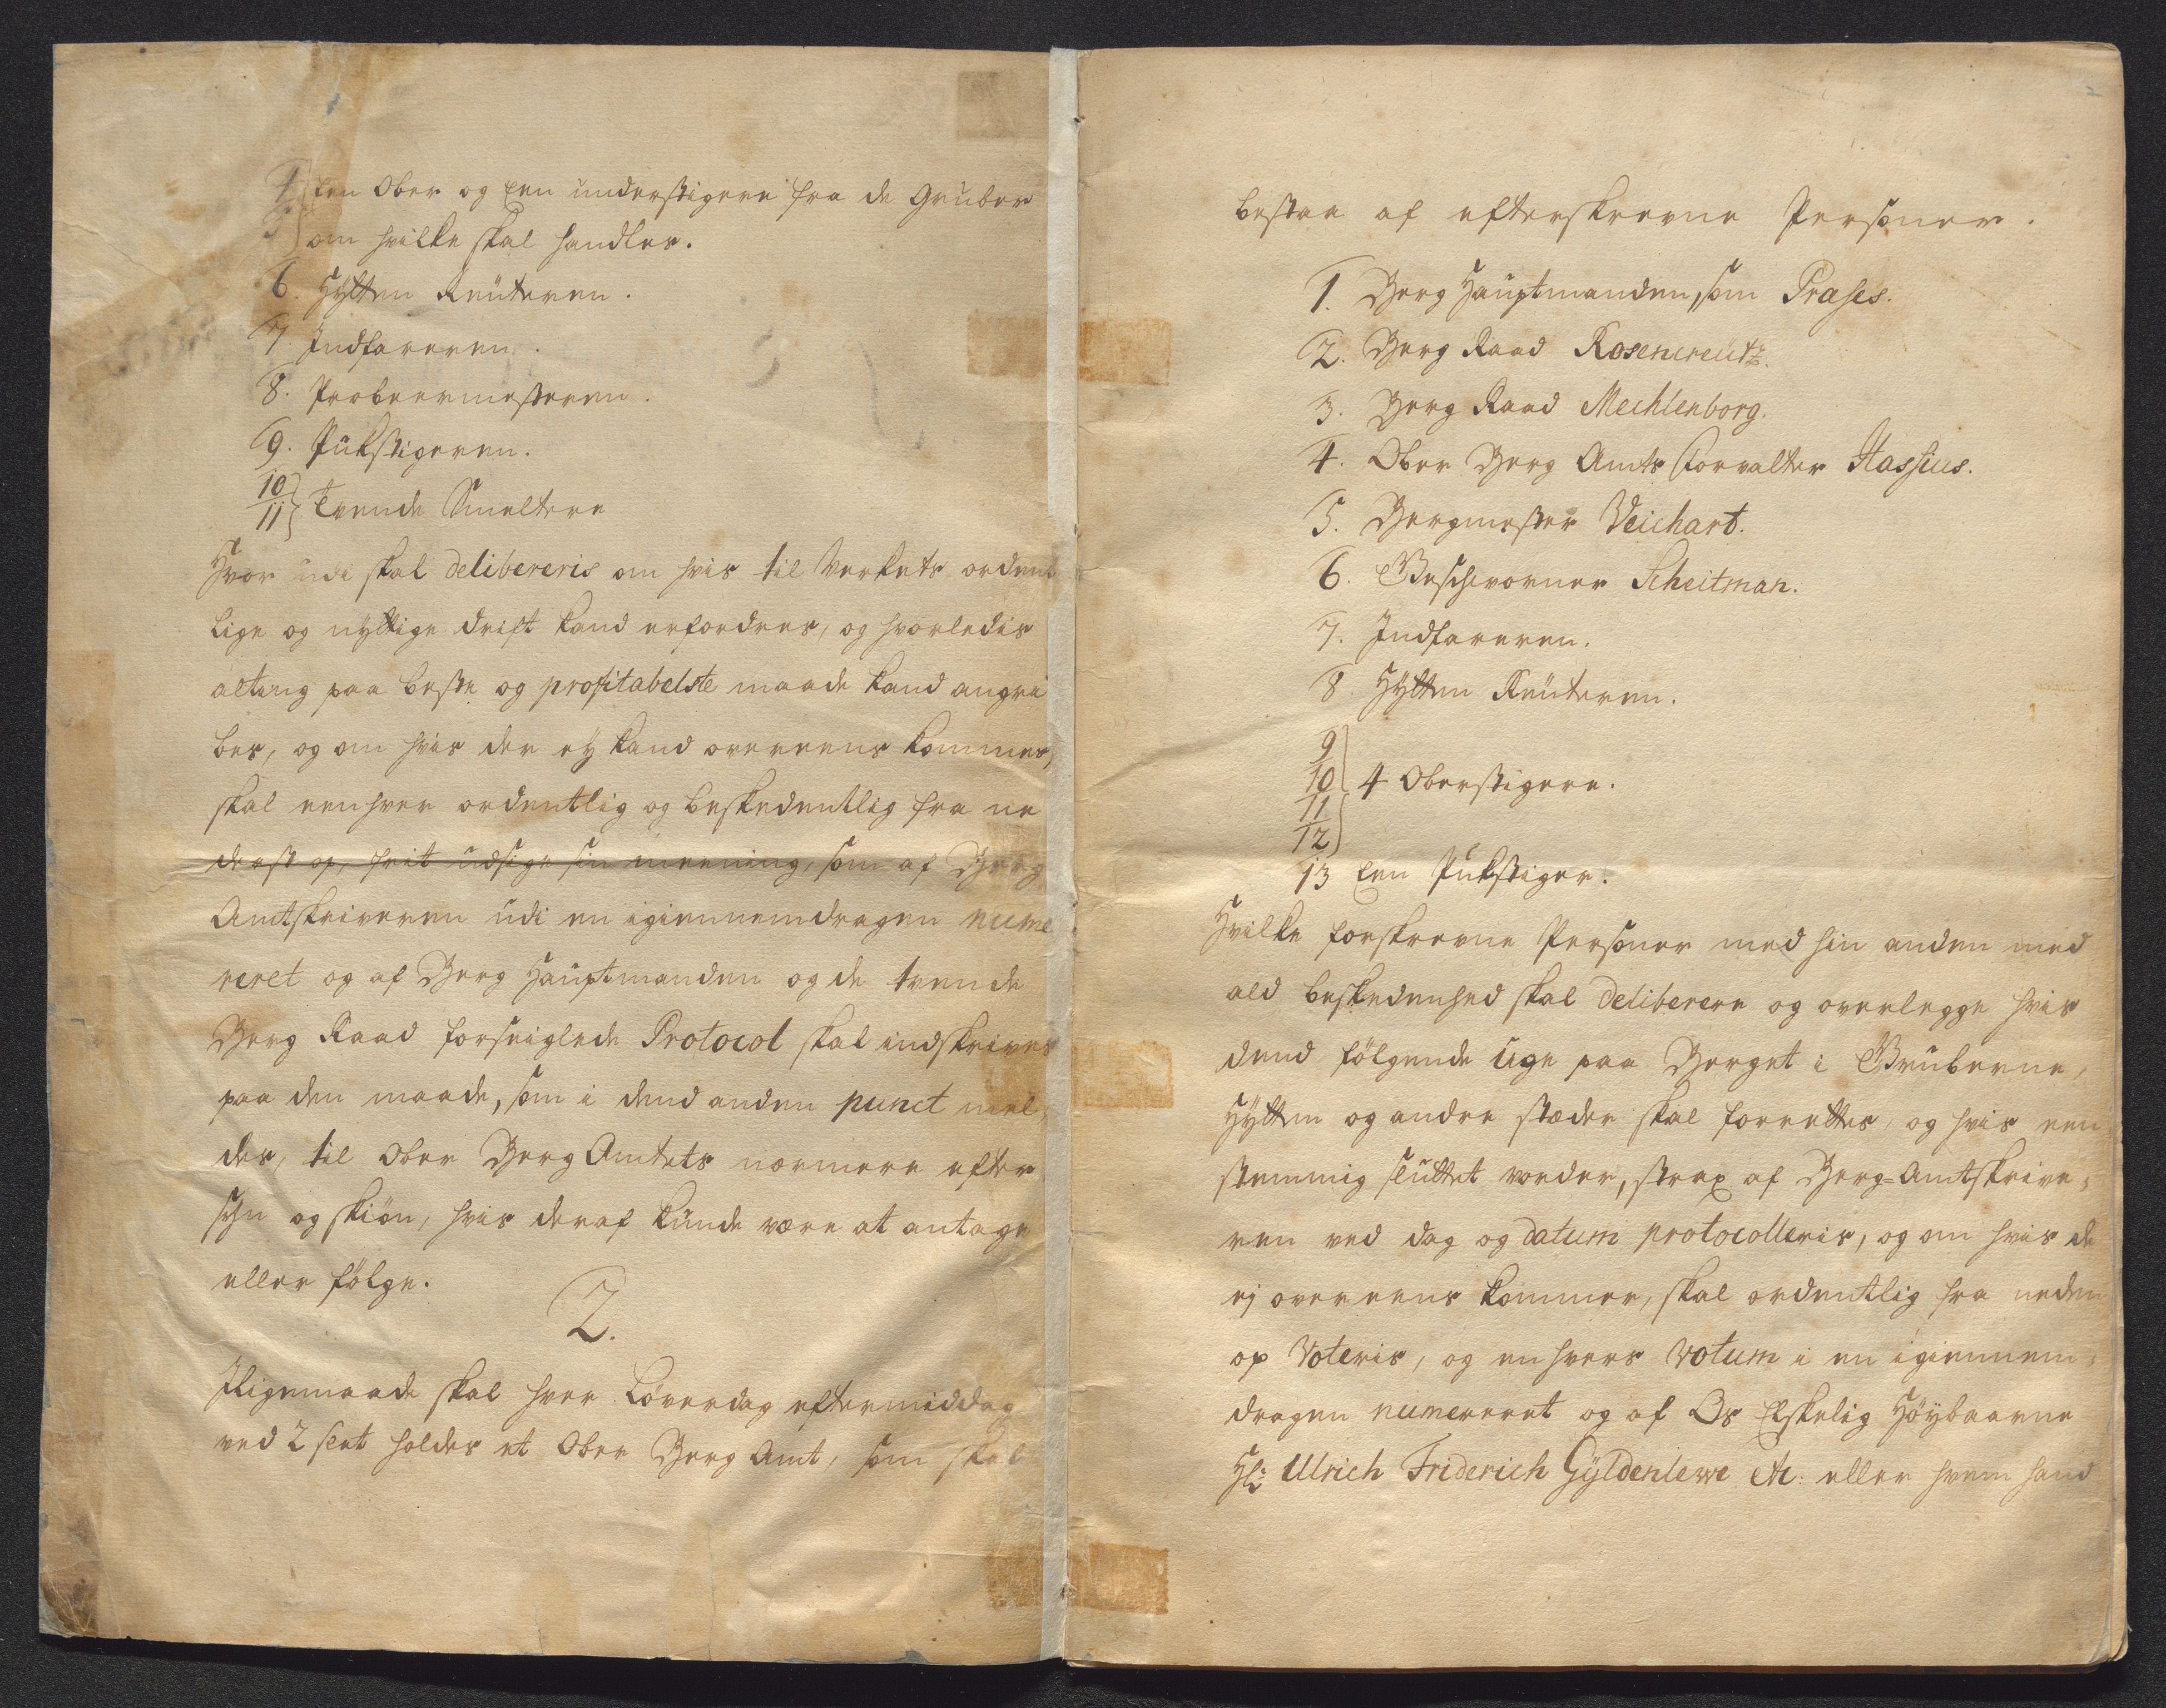 4 Een Ober og Een understigere fra de Gruber
5 om hvilke skal handles.
6. Hÿtten Reüteren.
7 Indfareren.
8. Probeermesteren.
9. Pükstigeren.
10
11 Tvende Smeltere
Hvor udi skal delibereris om hvis til Verkets ordent
lige og nÿttige drift kand erfordres, og hvorledis
alting paa beste og profitabelste maade kand angri
bes, og om hvis der eÿ kand overeens kommes,
skal eenhver ordentlig og beskedentlig fra ne
derst op, frit üdsige sin meening, som af Berg
Amtskriveren üdi en igiennemdragen nume
reret og af Berg Haüptmanden og de tvende
Berg Raad forseiglede Protocol skal indskrives
paa den maade, som i dend anden punct mel,
des, til Ober Berg Amtets nærmere efter
sÿn og skiøn, hvis deraf künde være at antage
eller fölge.
2.
Iligemaade skal hver Löverdag eftermiddag
ved 2 slet holdes et Ober Berg Amt, som skal
bestaa af efterskrevne Personer.
1. Berg Haüptmanden, som Præses.
2. Berg Raad Rosencreütz.
3. Berg Raad Mechlenborg.
4. Ober Berg Amts Forvalter Hassius.
5. Bergmester Veichart.
6. Geschworner Scheitman.
7. Indfareren.
8. Hÿtten Reüteren.
9
10 4 Oberstigere.
11
12
13 Een Pükstiger.
Hvilke forskrevne Personer med hin anden med
ald beskedenhed skal deliberere og overlegge hvis
dend fölgende Uge paa Berget i Gruberne,
Hÿtten og andre stæder skal forrettes, og hvis een
stemmig slüttet vorder, strax af Berg=Amtskrive=
ren ved dag og datum protocolleris, og om hvis de
ej overeens kommer, skal ordentlig fra neden
op Voteris, og en hvers Votum i en igiennem=
dragen numereret og af Os Elskelig Höÿbaarne
Hr: Ulrich Friderich Gÿldenlewe etc: eller hvem hand